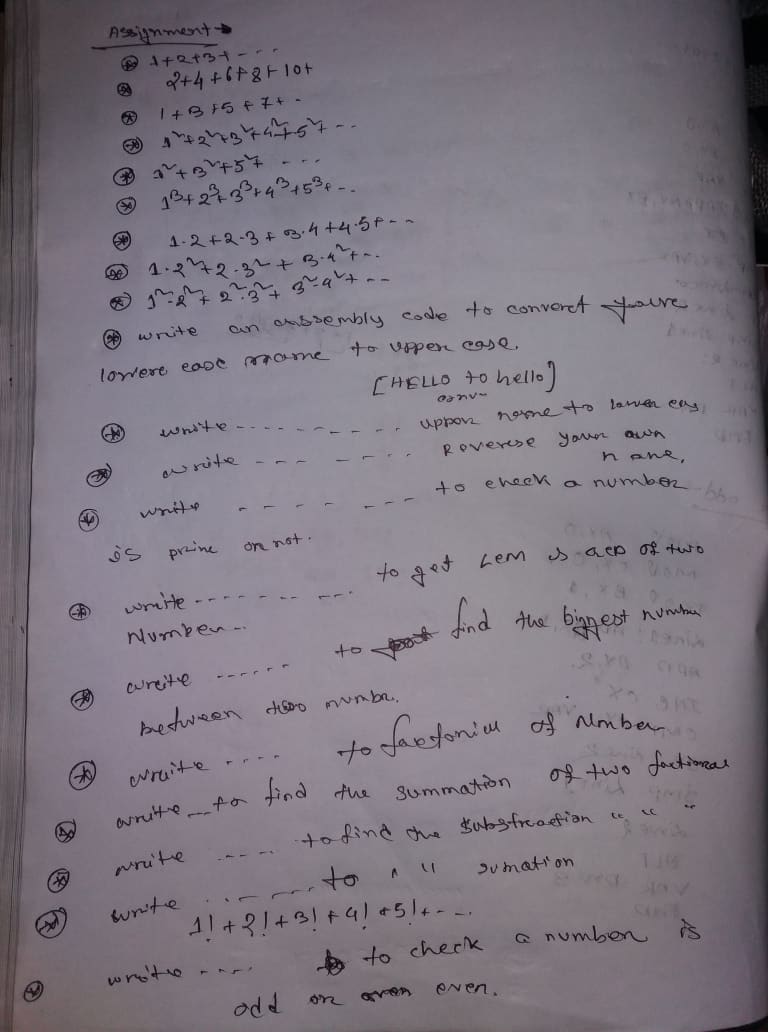 Assignment →
1+2+3+ - - -
2+4+6+8+10+
1+3+5+7+ -
1²+2²+3²+4²+5²+ - -
1²+3²+5²+ - - -
1³+2³+3³+4³+5³+ - -
1.2+2.3+3.4+4.5+ - -
1.2²+2.3²+3.4²+ - -
1².2²+2².3²+3².4²+ - -
write an assembly code to convert youre
lowere case name to upper case.
[HELLO to hello]
conv
write - - - - - - - - - upper name to lower cas
write - - - - - - - Reverse your own
name,
write - - - - - - - to check a number
is prime or not.
write - - - - - - - - to get LCM & GCD of two
Number -
write - - - - - - to find the biggest number
between two numbr.
write - - - - to factorial of Number
write - to find the summation of two factional
write - - - - - to find the substraction " " "
write - - - - - - to " sumation
1!+2!+3!+4!+5!+ - - -
write - - - - to check a number is
odd or even.